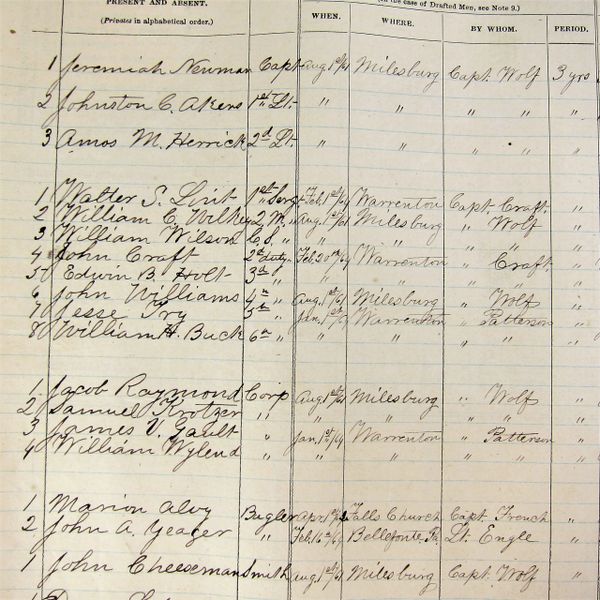 PRESENT AND ABSENT.
(Privates in alphabetical order.)
(In the case of Drafted Men, see Note 9.)
WHEN. WHERE. BY WHOM. PERIOD.
1 Jeremiah Newman Capt Aug 1st/61 Milesburg Capt. Wolf 3 yrs
2 Johnston C. Akens 1st Lt. " " " " "
3 Amos M. Herrick 2d Lt. " " " " "
1 Walter S. Lint 1st Serg Feb. 1st/64 Warrenton Capt. Craft. "
2 William C. Wilkey Q. M. " Aug 1st/61 Milesburg " Wolf "
3 William Wilson C. S. " " " " " "
4 John Craft 2d duty Feb. 20th/64 Warrenton " Craft. "
5 Edwin B. Holt 3d " " " " " "
6 John Williams 4th " Aug. 1st/61 Milesburg " Wolf "
7 Jesse Fry 5th " Jan. 1st/64 Warrenton " Patterson "
8 William H. Buck 6th " " " " " "
1 Jacob Raymond Corp Aug 1st/61 Milesburg " Wolf "
2 Samuel Krotzer " " " " " "
3 James V. Gault " Jan. 1st/64 Warrenton " Patterson "
4 William Wylend " " " " " "
1 Marion Alvy Bugler Apr. 1st/62 Falls Church Capt. French "
2 John A. Yeager " Feb. 16th/64 Bellefonte Pa Lt. Engle "
1 John Cheeseman Smith Aug 1st/61 Milesburg Capt. Wolf "